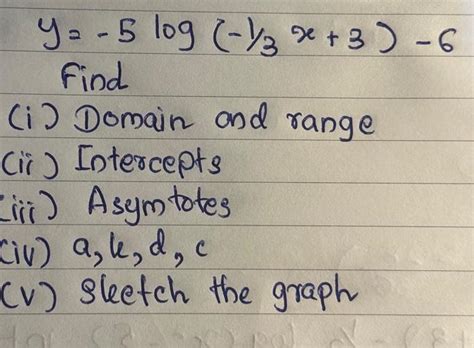 y = -5 log (-1/3 x + 3) - 6
Find
(i) Domain and range
(ii) Intercepts
(iii) Asymtotes
(iv) a, k, d, c
(v) Sketch the graph